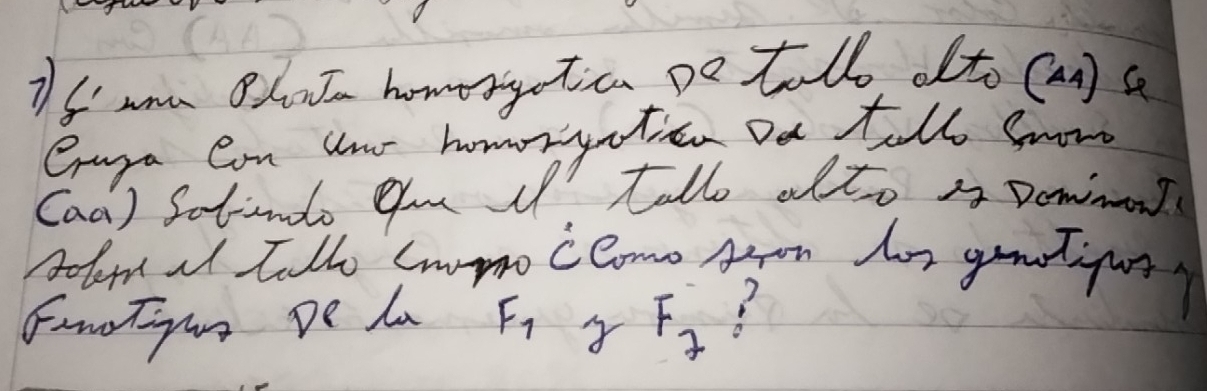 7) Si una Planta homosigotica De tallo alto (AA) se
Cruza Con una homosigotica De tallo Enano
(aa) Sabiendo Que el tallo alto es Dominante
sobre el tallo Enano ¿Como seran los genotipos y
Fenotipos De la F1 y F2?